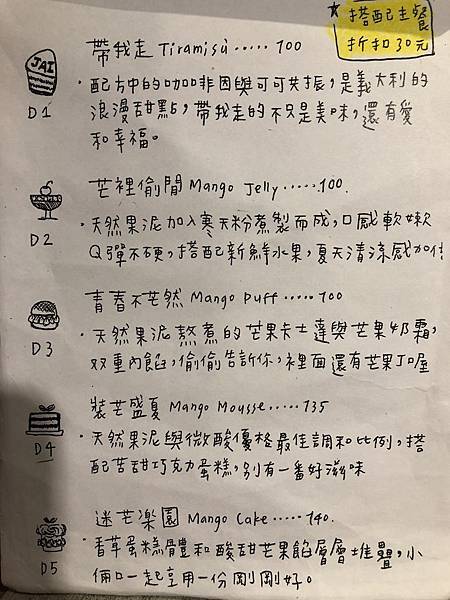 ★ 搭配主餐
折扣30元
JAI
帶我走 Tiramisù ..... 100
D1
・配方中的咖啡因與可可共振，是義大利的
浪漫甜點，帶我走的不只是美味，還有愛
和幸福。
芒裡偷閒 Mango Jelly ......100.
D2
・天然果泥加入寒天粉煮製而成，口感軟嫩
Q彈不硬，搭配新鮮水果，夏天清涼感加倍
青春不芒然 Mango Puff ......100
D3
・天然果泥熬煮的芒果卡士達與芒果奶霜，
双重內餡，偷偷告訴你，裡面還有芒果丁喔
裝芒盛夏 Mango Mousse.....135
D4
・天然果泥與微酸優格最佳調和比例，搭
配苦甜巧克力蛋糕，別有一番好滋味
迷芒樂園 Mango Cake.....140.
D5
・香草蛋糕體和酸甜芒果餡層層堆疊，小
倆口一起享用一份剛剛好。